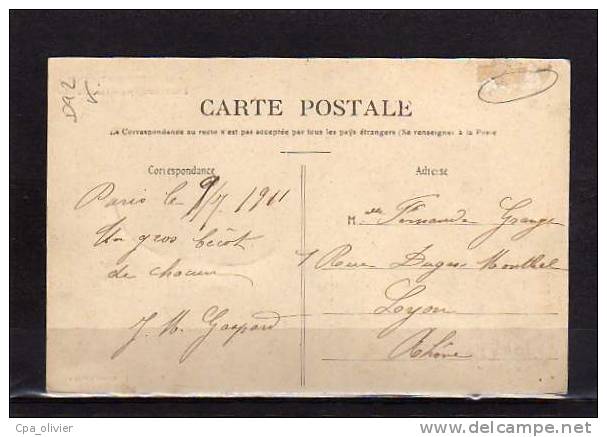 D92
V.
CARTE POSTALE
La Correspondance au recto n'est pas acceptée par tous les pays étrangers (Se renseigner à la Poste
Correspondance
Paris le 9/7 1911
Un gros bécot
de chacun
J. M. Gaspard
Adresse
Melle Fernande Grange
7 Rue Dugas Montbel
Lyon
Rhône
Cpa_olivier
delcampe.net